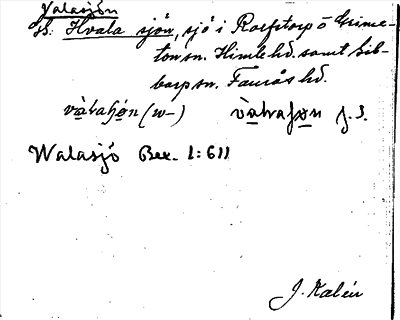 Valasjön
sk. Hvala sjön, sjö i Rosstorp o Grime-
ton sn. Himle hd. samt Sib-
barp sn. Faurås hd.
vàlrahǫn (w-) vàlrafǫn J. S.
Walasjö Bex. 1:611
J. Kalén